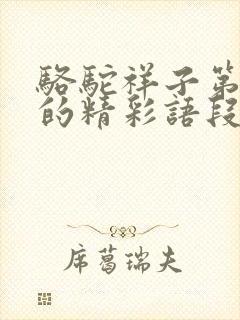 駱駝祥子第
的精彩語段
席葛瑞夫